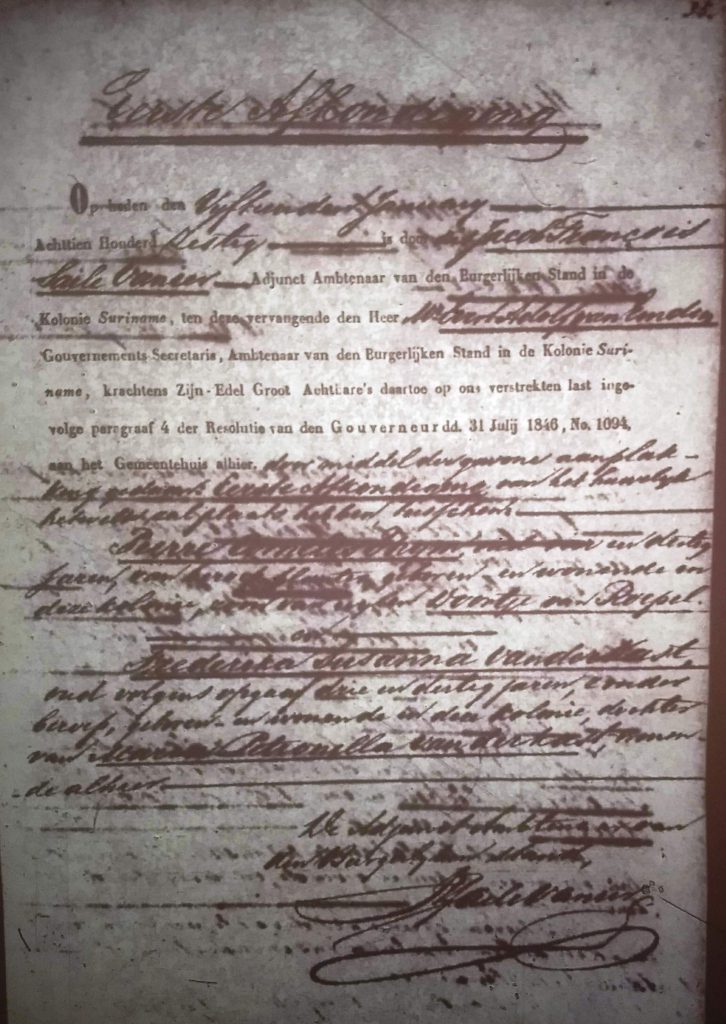 Eerste Afkondiging
Op heden den Vijftienden January
Achttien Honderd Sestig is door Jacob François
Saile Vanier Adjunct Ambtenaar van den Burgerlijken Stand in de
Kolonie Suriname, ten deze vervangende den Heer Mr. Evert Adolf van Emden
Gouvernements Secretaris, Ambtenaar van den Burgerlijken Stand in de Kolonie Suri-
name, krachtens Zijn-Edel Groot Achtbare's daartoe op ons verstrekten last inge-
volge paragraaf 4 der Resolutie van den Gouverneur dd. 31 Julij 1846, No. 1094,
aan het Gemeentehuis alhier, door middel der gewone aanplak-
king gedaan Eerste Afkondiging van het huwelijk
hetwelk zal plaats hebben tusschen
Pierre en dertig
Jaren, van beroep geboren en wonende in
deze kolonie, zoon van wijlen Voortje van Roepel.
en
Frederika Susanna van der Kast,
oud volgens opgaaf drie en dertig jaren, zonder
beroep, geboren en wonende in deze kolonie, dochter
van Petronella van der Kast, wonen-
de alhier
De Adjunct Ambtenaar van
den Burgerlijken Stand,
Saile Vanier